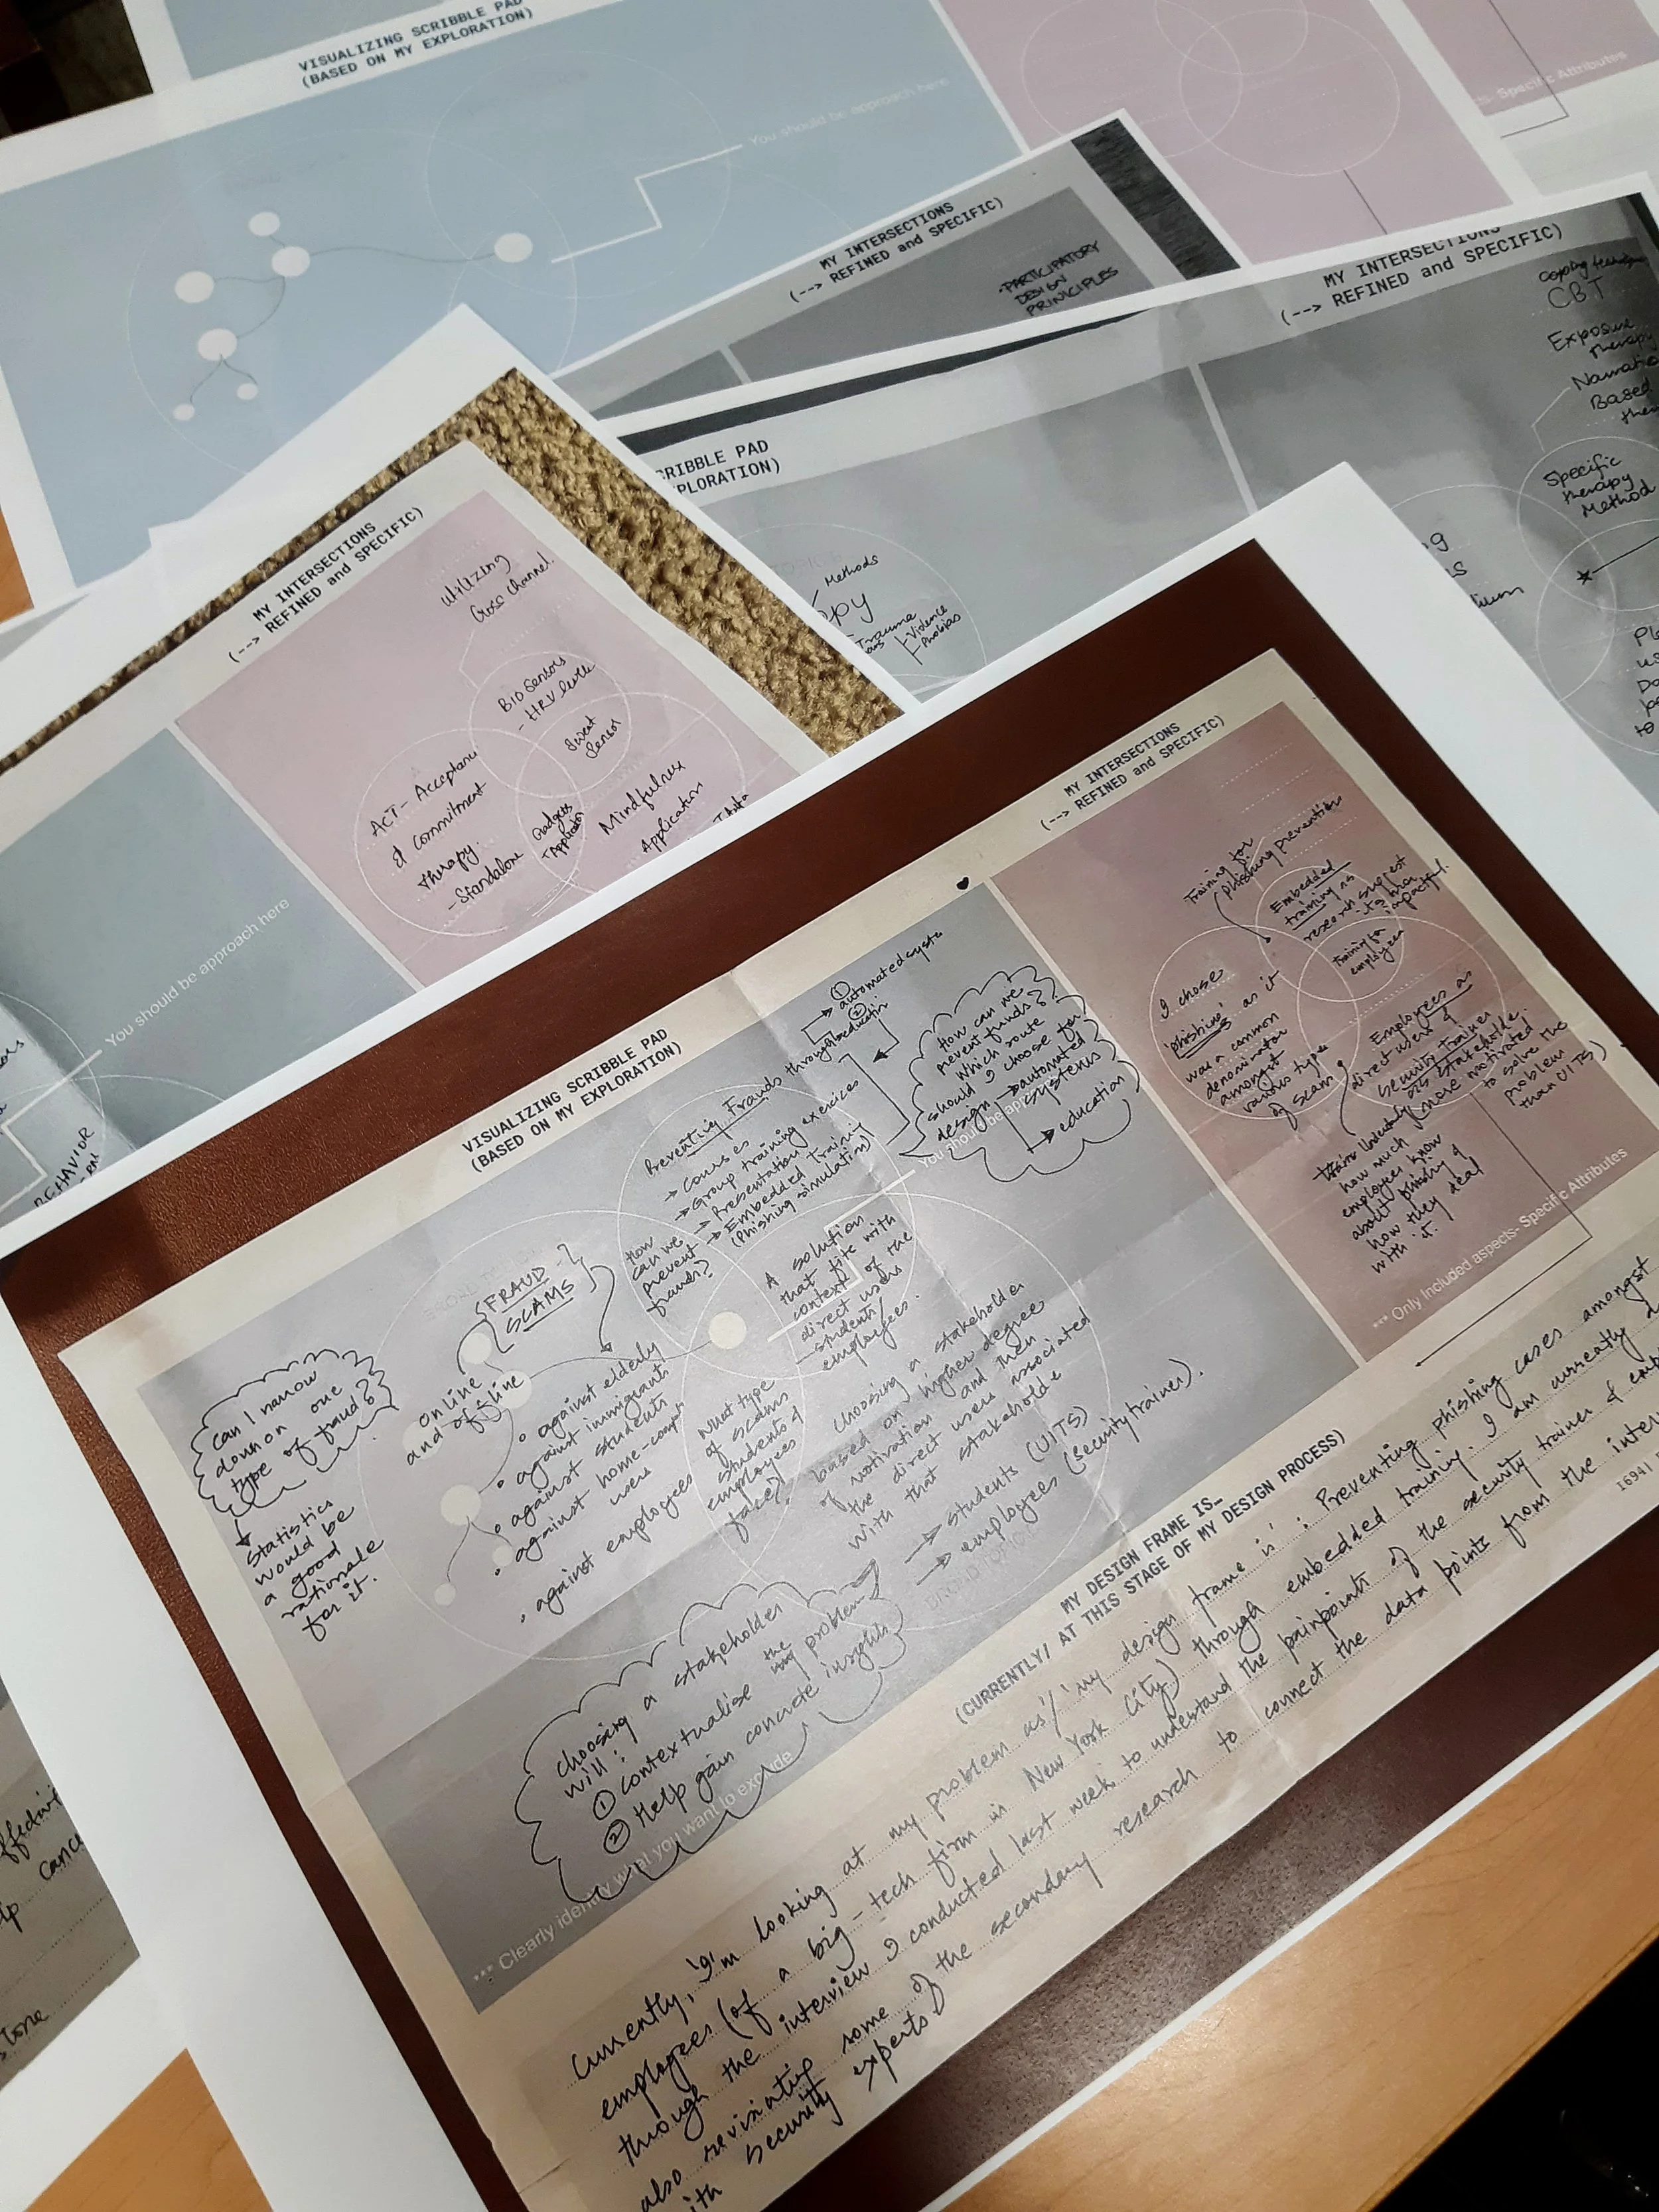 VISUALIZING SCRIBBLE PAD
(BASED ON MY EXPLORATION)
You should be approach here
Specific Attributes
MY INTERSECTIONS
(--> REFINED and SPECIFIC)
-PARTICIPATORY
DESIGN
PRINICIPLES
MY INTERSECTIONS
(--> REFINED and SPECIFIC)
CBT
Exposure
therapy
Based
Specific
therapy
Method
SCRIBBLE PAD
EXPLORATION)
Methods
Trauma
Violence
Phobias
MY INTERSECTIONS
(--> REFINED and SPECIFIC)
utilizing
Cross channel.
BIO Sensors
- HRV levels
Sweat
Sensor
ACT- Acceptance
& commitment
therapy.
- Standalone
Gadgets
+Application
Mindfulness
Application
You should be approach here
MY INTERSECTIONS
(--> REFINED and SPECIFIC)
Training for
phishing prevention
Embedded
training as
research suggest
its more
impactful.
training for
employees
I chose
'phishing' as it
was a common
denominator
amongst
various types
of scams
Employees as
direct users &
security trainer
as stakeholder
more motivated
to solve the
problem
than UITS)
how much
employees know
about phishing &
how they deal
with it.
*** Only Included aspects- Specific Attributes
VISUALIZING SCRIBBLE PAD
(BASED ON MY EXPLORATION)
① automated system
② education
Preventing Frauds through
→ courses
→ Group training exercises
→ Presentations
→ Embedded Training
(Phishing simulation)
How can we
prevent funds?
Which route
should I choose for
design → automated
systems
→ education
You should be approach
How
can we
prevent
frauds?
A solution
that fits with
context of the
direct users
- students/
employees.
{FRAUD -
SCAMS}
online
and offline
can I narrow
down on one
type of fraud?
Statistics
would be
a good
rationale
for it.
• against elderly
• against immigrants
• against students
• against home-computer
users
• against employees
What type
of scams
students &
employees
face?
Choosing a stakeholder
based on higher degree
of motivation and then
the direct users associated
with that stakeholder
→ students (UITS)
→ employees (security trainer).
choosing a stakeholder
will:
① contextualise the problem
② Help gain concrete insights
*** Clearly identify what you want to exclude
MY DESIGN FRAME IS…
(CURRENTLY/ AT THIS STAGE OF MY DESIGN PROCESS)
Currently, I'm looking at my problem as / my design frame is : Preventing phishing cases amongst
employees (of a big-tech firm in New York City) through embedded training. I am currently
through the interview I conducted last week to understand the painpoints of the security trainer &
also revisiting some of the secondary research to connect the data points from the
with security experts